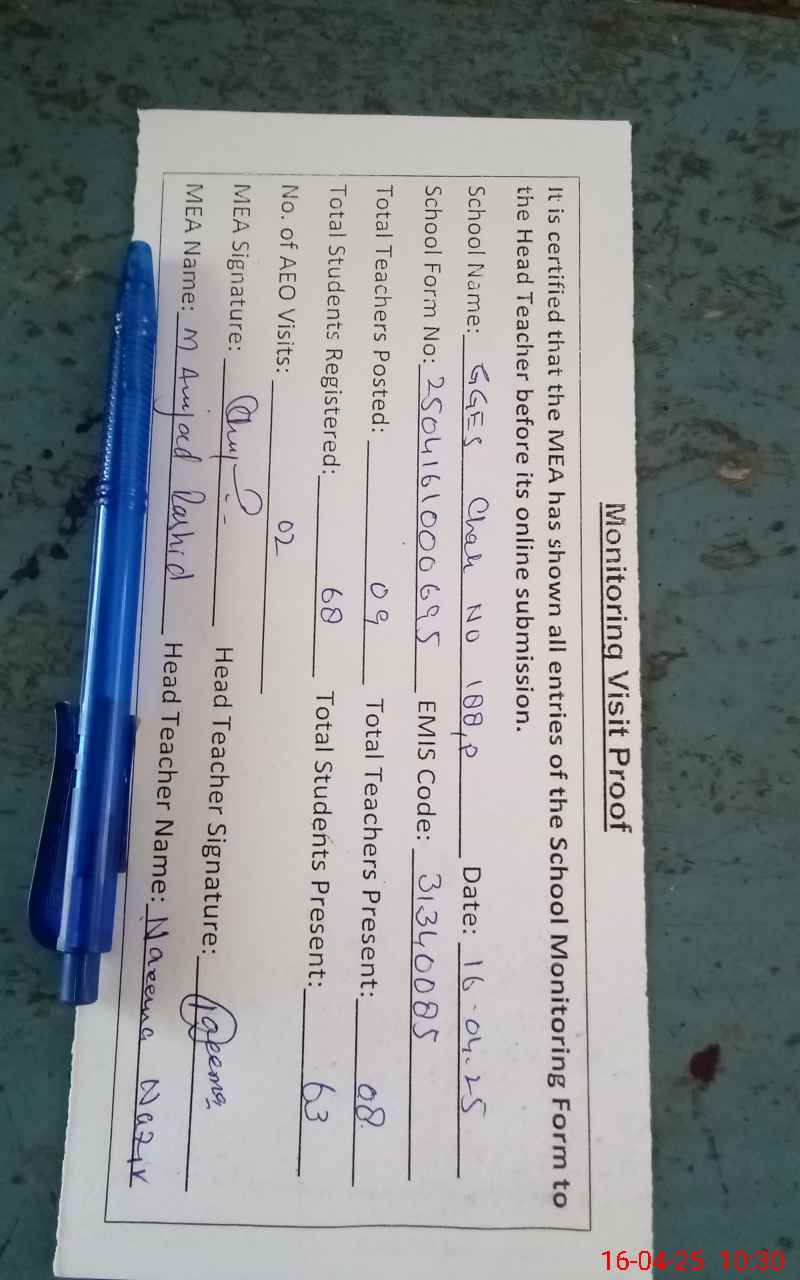 Monitoring Visit Proof
It is certified that the MEA has shown all entries of the School Monitoring Form to
the Head Teacher before its online submission.
School Name: GGES Chak NO 188,P Date: 16.04.25
School Form No: 2504161000695 EMIS Code: 31340085
Total Teachers Posted: 09 Total Teachers Present: 08
Total Students Registered: 68 Total Students Present: 63
No. of AEO Visits: 02
MEA Signature: Head Teacher Signature:
MEA Name: M Amjad Rashid Head Teacher Name: Nazir
16-04-25 10:30